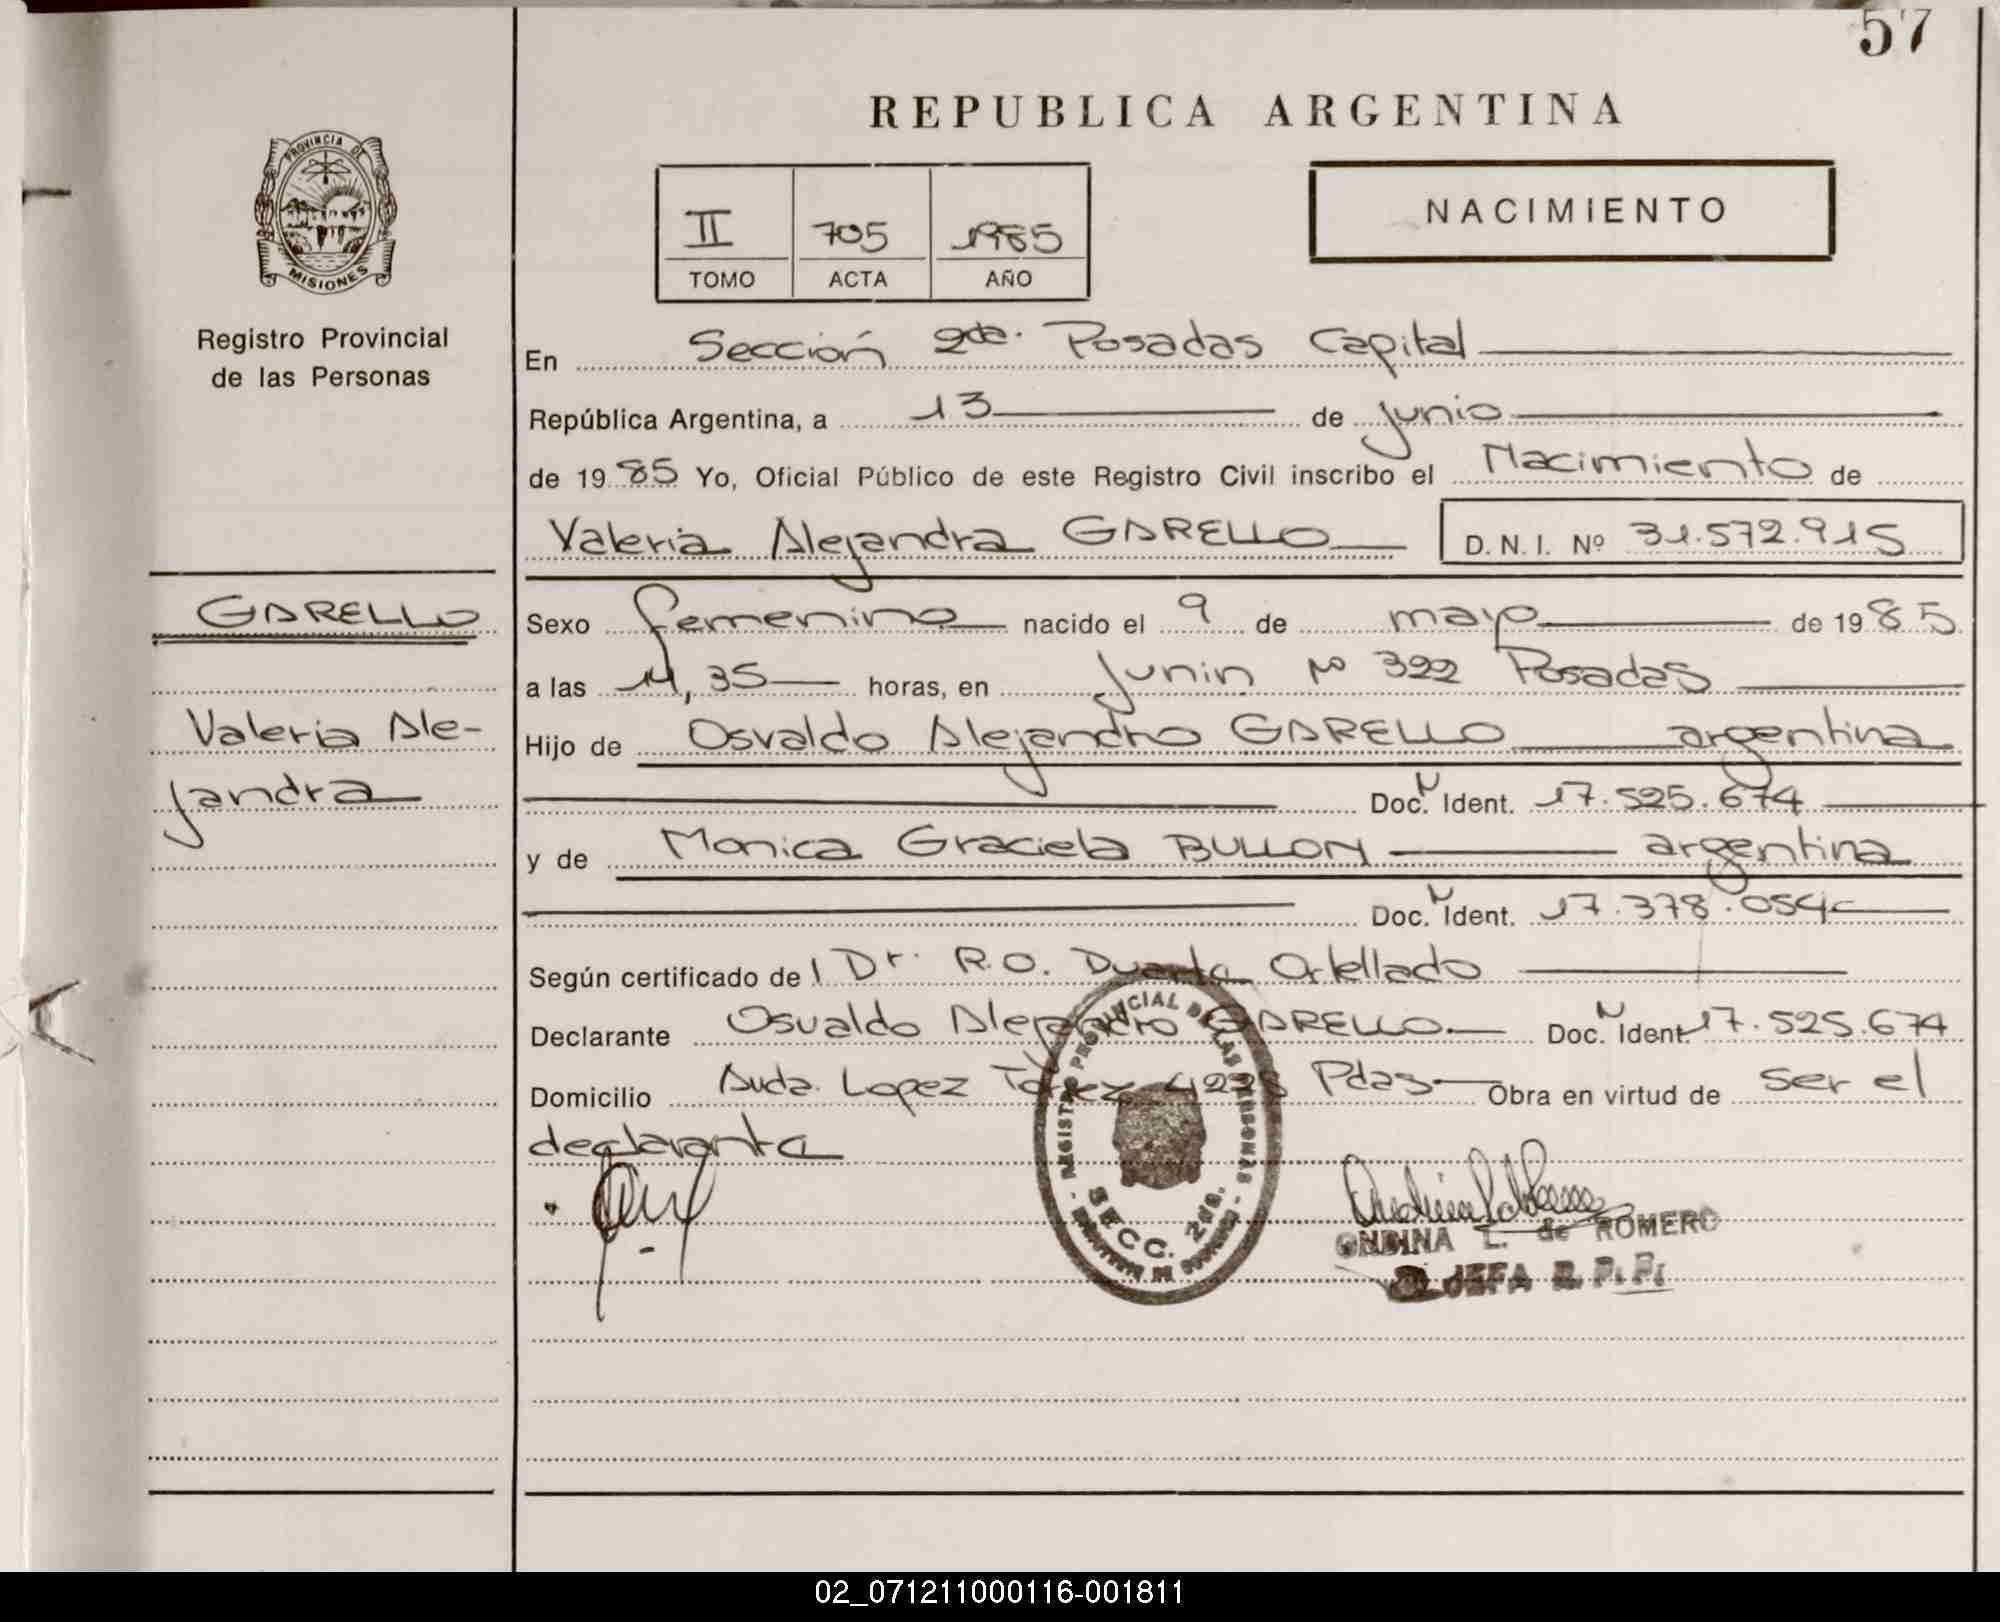 57
REPUBLICA ARGENTINA
PROVINCIA DE
MISIONES
Registro Provincial
de las Personas
II 705 1985
TOMO ACTA AÑO
NACIMIENTO
En Sección 2da. Posadas Capital
República Argentina, a 13 de junio
de 1985 Yo, Oficial Público de este Registro Civil inscribo el Nacimiento de
Valeria Alejandra GARELLO D. N. I. Nº 31.572.915
GARELLO
Valeria Ale-
jandra
Sexo femenino nacido el 9 de mayo de 1985
a las 35 horas, en Junin Nº 322 Posadas
Hijo de Osvaldo Alejandro GARELLO argentina
Doc. N Ident. 17.525.674
y de Monica Graciela BULLON argentina
Doc. N Ident. 17.378.054
Según certificado de l Dr. R.O. Duarte Ortellado
Declarante Osvaldo Alejandro GARELLO Doc. N Ident. 17.525.674
Domicilio Avda. Lopez Pdas Obra en virtud de ser el
declarante
REGISTRO PROVINCIAL DE LAS PERSONAS
SECC. 2da.
ONDINA L. de ROMERO
JEFA R. P. P.
02_071211000116-001811